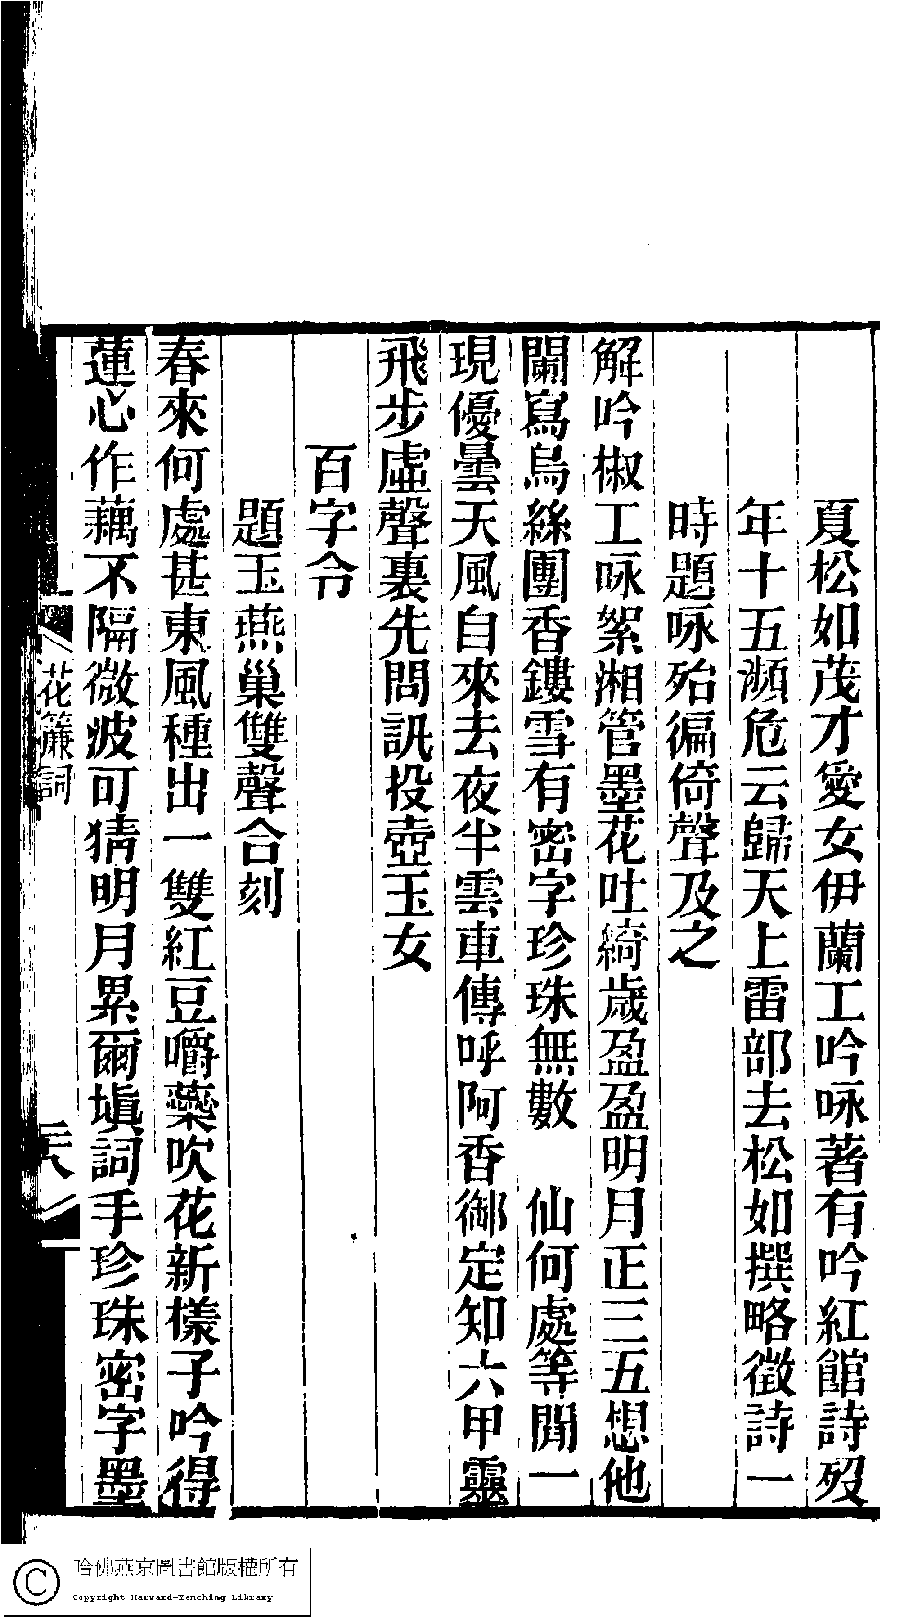 夏松如茂才愛女伊蘭工吟咏著有吟紅館詩歿
年十五瀕危云歸天上雷部去松如撰略徵詩一
時題咏殆徧倚聲及之
解吟椒工咏絮湘管墨花吐綺歲盈盈明月正三五想他
闌寫烏絲團香鏤雪有密字珍珠無數　仙何處等閒一
現優曇天風自來去夜半雲車傳呼阿香御定知六甲靈
飛步虛聲裏先問訊投壺玉女
百字令
題玉燕巢雙聲合刻
春來何處甚東風種出一雙紅豆嚼蘂吹花新樣子吟得
蓮心作藕不隔微波可猜明月累爾塡詞手珍珠密字墨
花簾詞
哈佛燕京圖書館版權所有
Copyright Harvard-Yenching Library